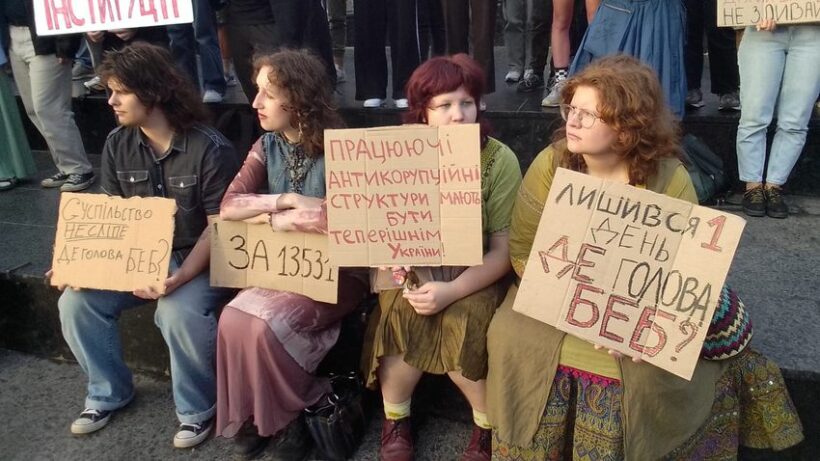 ІНСТИТУЦІЇ
НЕ ЗЛИВАЙ
СУСПІЛЬСТВО
НЕ СЛІПЕ
ДЕ ГОЛОВА
БЕБ?
ЗА 13531
ПРАЦЮЮЧІ
АНТИКОРУПЦІЙНІ
СТРУКТУРИ МАЮТЬ
БУТИ
ТЕПЕРІШНІМ
УКРАЇНИ!
ЛИШИВСЯ 1
ДЕНЬ
ДЕ ГОЛОВА
БЕБ?